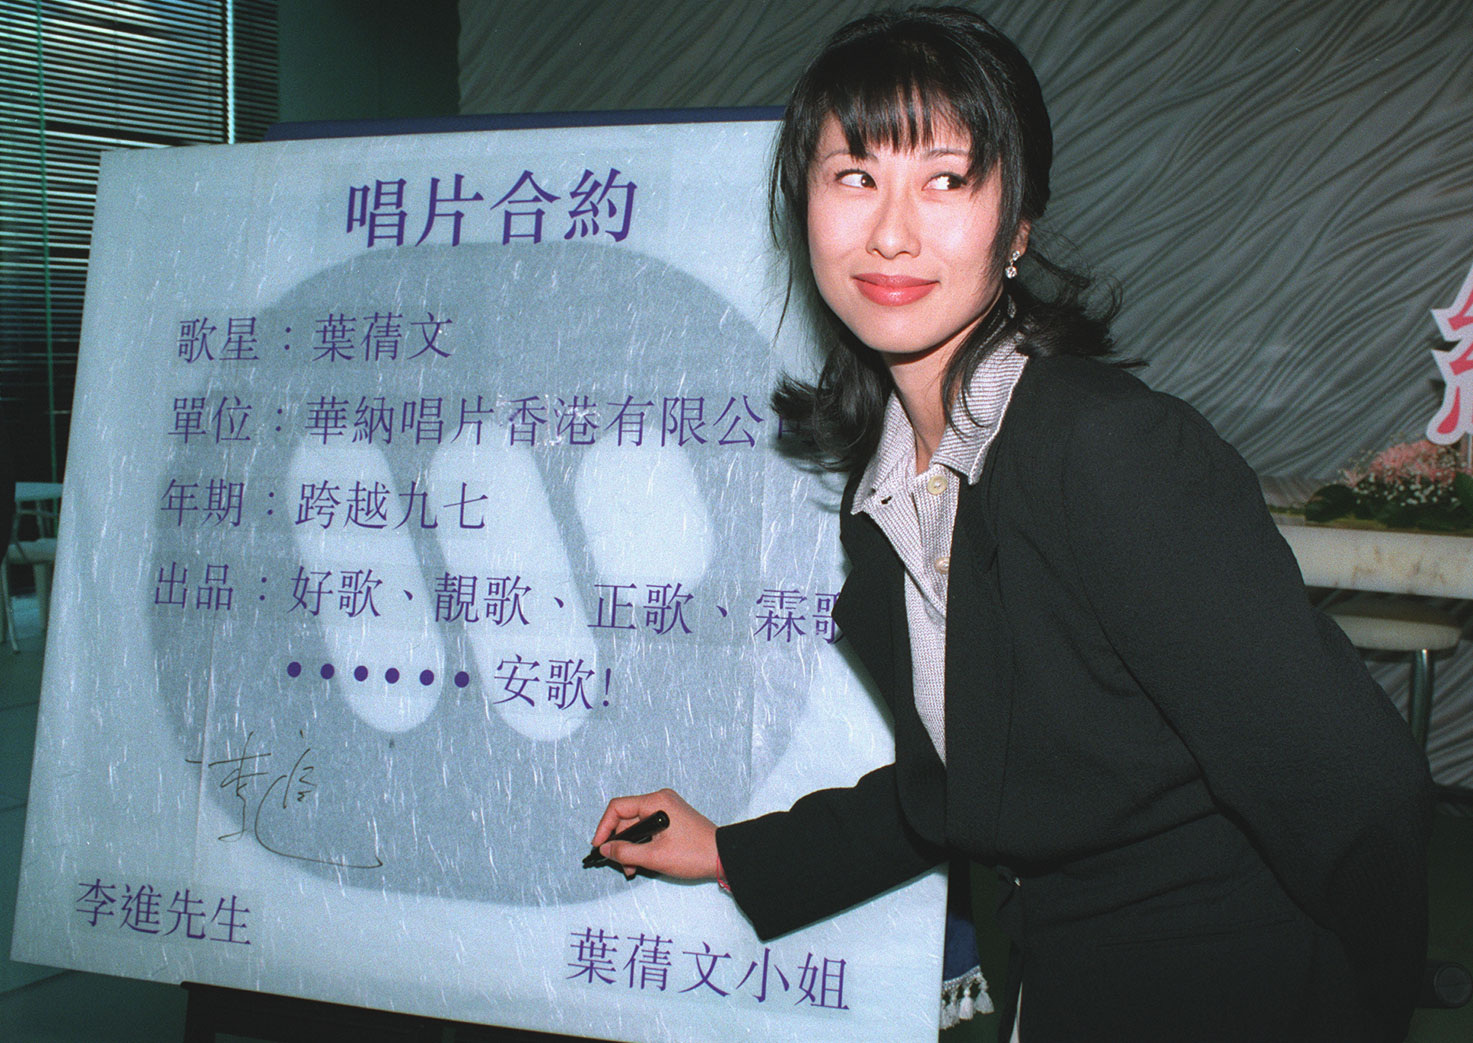 唱片合約
歌星：葉蒨文
單位：華納唱片香港有限公司
年期：跨越九七
出品：好歌、靚歌、正歌、霖歌
••••••安歌!
李進
李進先生
葉蒨文小姐